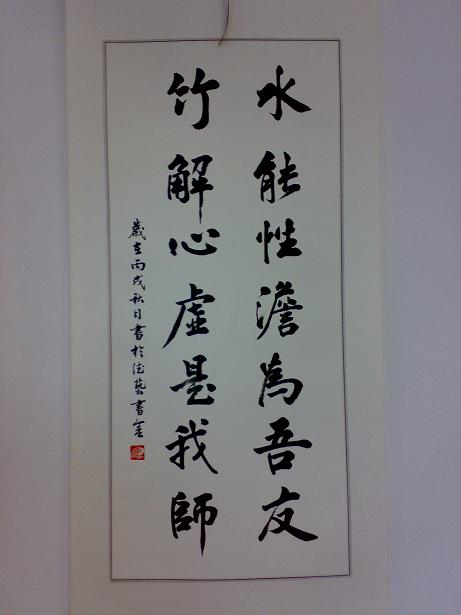 水能性澹為吾友
竹解心虛是我師
歲在丙戌秋日書於德藝書室